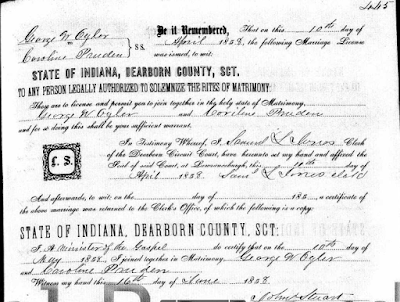 445
George W Oyler
Caroline Pruden
} SS.
Be it Remembered, That on this 10th day of
April 1858, the following Marriage License
was issued, to wit:
STATE OF INDIANA, DEARBORN COUNTY, SCT.
TO ANY PERSON LEGALLY AUTHORIZED TO SOLEMNIZE THE RITES OF MATRIMONY:
They are to license and permit you to join together in the holy state of Matrimony,
George W. Oyler and Caroline Pruden
and for so doing this shall be your sufficient warrant.
L. S.
In Testimony Whereof, I, Samuel L Jones Clerk
of the Dearborn Circuit Court, have hereunto set my hand and affixed the
Seal of said Court, at Lawrenceburgh, this 10th day of
April 1858. Saml L Jones Clk
And afterwards, to wit: on the day of 185 , a certificate of
the above marriage was returned to the Clerk's Office, of which the following is a copy:
STATE OF INDIANA, DEARBORN COUNTY, SCT:
I, A Minister of the Gospel do certify that on the 10th day of
May 1858, I joined together in Matrimony, George W Oyler
and Caroline Pruden
Witness my hand this 16th day of June 1858
John Stuart